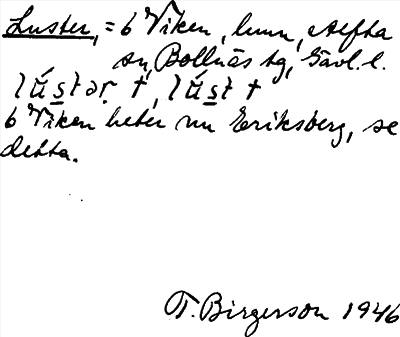 Luster, = 6 Viken, hmn, Alfta
sn, Bollnäs tg, Gävl. l.
lú̱stər. †, lú̱st †
6 Viken heter nu Eriksberg, se
detta.
T. Birgerson 1946